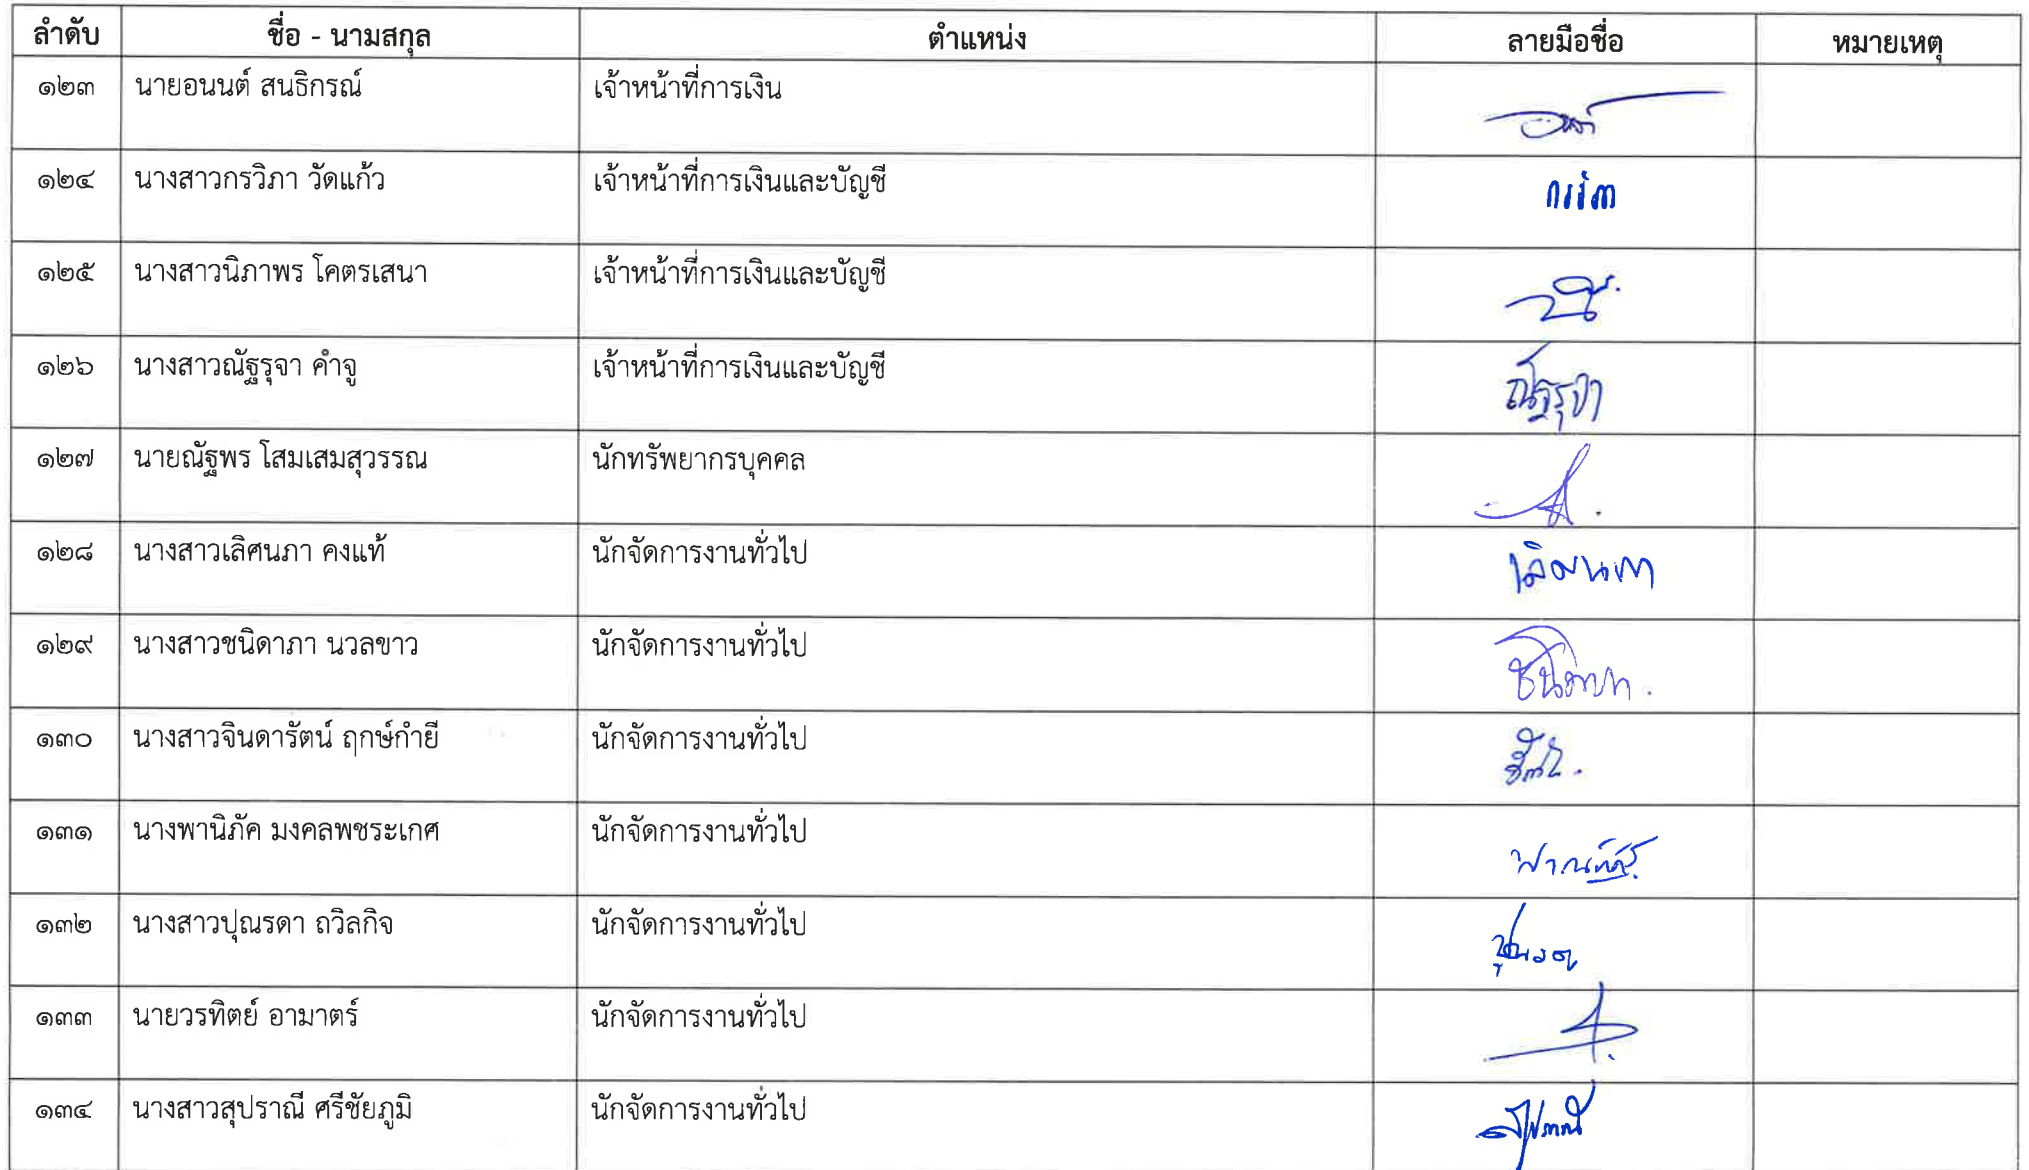 ลำดับ ชื่อ - นามสกุล ตำแหน่ง ลายมือชื่อ หมายเหตุ
๑๒๓ นายอนนต์ สนธิกรณ์ เจ้าหน้าที่การเงิน
๑๒๔ นางสาวกรวิภา วัดแก้ว เจ้าหน้าที่การเงินและบัญชี
๑๒๕ นางสาวนิภาพร โคตรเสนา เจ้าหน้าที่การเงินและบัญชี
๑๒๖ นางสาวณัฐรุจา คำจู เจ้าหน้าที่การเงินและบัญชี ณัฐรุจา
๑๒๗ นายณัฐพร โสมเสมสุวรรณ นักทรัพยากรบุคคล
๑๒๘ นางสาวเลิศนภา คงแท้ นักจัดการงานทั่วไป เลิศนภา
๑๒๙ นางสาวชนิดาภา นวลขาว นักจัดการงานทั่วไป
๑๓๐ นางสาวจินดารัตน์ ฤกษ์กำยี นักจัดการงานทั่วไป
๑๓๑ นางพานิภัค มงคลพชระเกศ นักจัดการงานทั่วไป
๑๓๒ นางสาวปุณรดา ถวิลกิจ นักจัดการงานทั่วไป
๑๓๓ นายวรทิตย์ อามาตร์ นักจัดการงานทั่วไป
๑๓๔ นางสาวสุปราณี ศรีชัยภูมิ นักจัดการงานทั่วไป